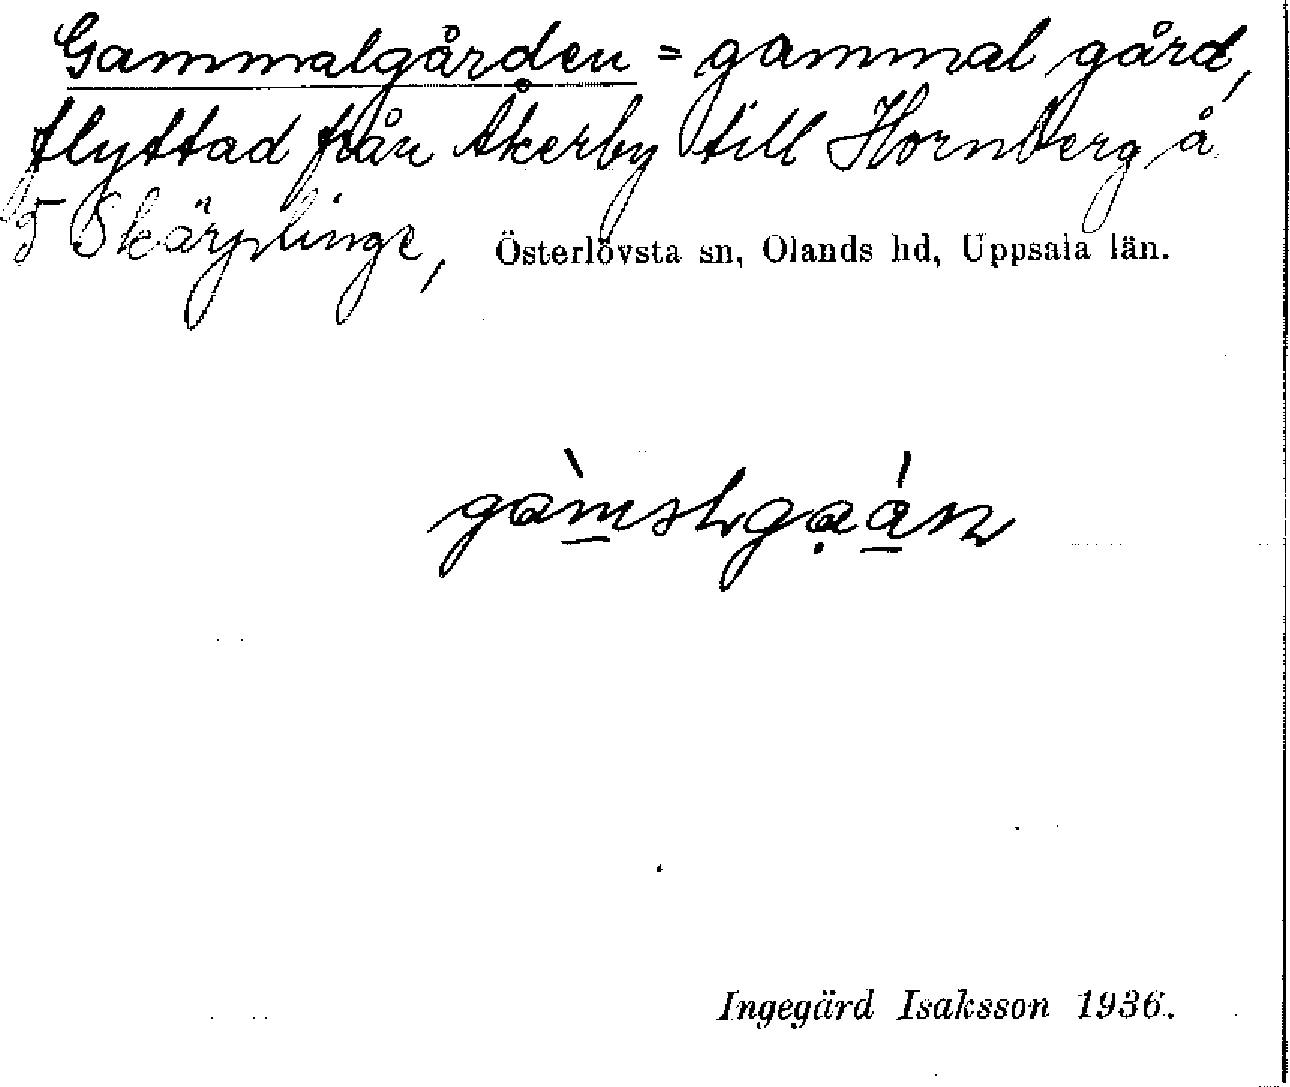 Gammalgården = gammal gård,
flyttad från Åkerby till Hornberg å
5 Skärplinge, Österlövsta sn, Olands hd, Uppsala län.
Ingegärd Isaksson 1936.